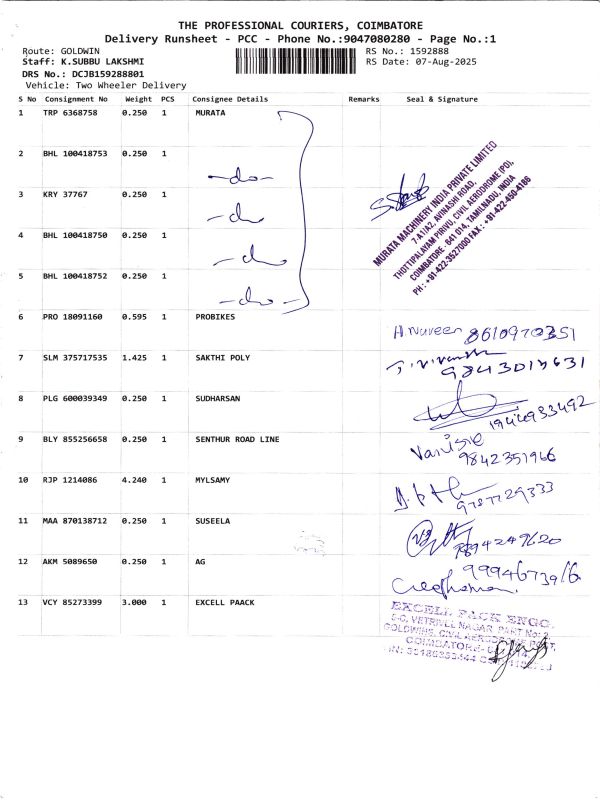 THE PROFESSIONAL COURIERS, COIMBATORE
Delivery Runsheet - PCC - Phone No.:9047080280 - Page No.:1
Route: GOLDWIN RS No.: 1592888
Staff: K.SUBBU LAKSHMI RS Date: 07-Aug-2025
DRS No.: DCJB159288801
Vehicle: Two Wheeler Delivery
S No Consignment No Weight PCS Consignee Details Remarks Seal & Signature
1 TRP 6368758 0.250 1 MURATA
2 BHL 100418753 0.250 1
-do-
3 KRY 37767 0.250 1
-do-
4 BHL 100418750 0.250 1
-do-
5 BHL 100418752 0.250 1
-do-
MURATA MACHINERY INDIA PRIVATE LIMITED
7-A1/A2, AVINASHI ROAD,
THOTTIPALAYAM PIRIVU, CIVIL AERODROME (PO),
COIMBATORE - 641 014, TAMILNADU, INDIA
PH : +91-422-3527000 FAX : +91-422-450-4186
6 PRO 18091160 0.595 1 PROBIKES
8610970351
7 SLM 375717535 1.425 1 SAKTHI POLY
9843013631
8 PLG 600039349 0.250 1 SUDHARSAN
9 BLY 855256658 0.250 1 SENTHUR ROAD LINE
9842351966
10 RJP 1214086 4.240 1 MYLSAMY
9787729333
11 MAA 870138712 0.250 1 SUSEELA
12 AKM 5089650 0.250 1 AG
13 VCY 85273399 3.000 1 EXCELL PAACK
EXCELL PACK ENGG.